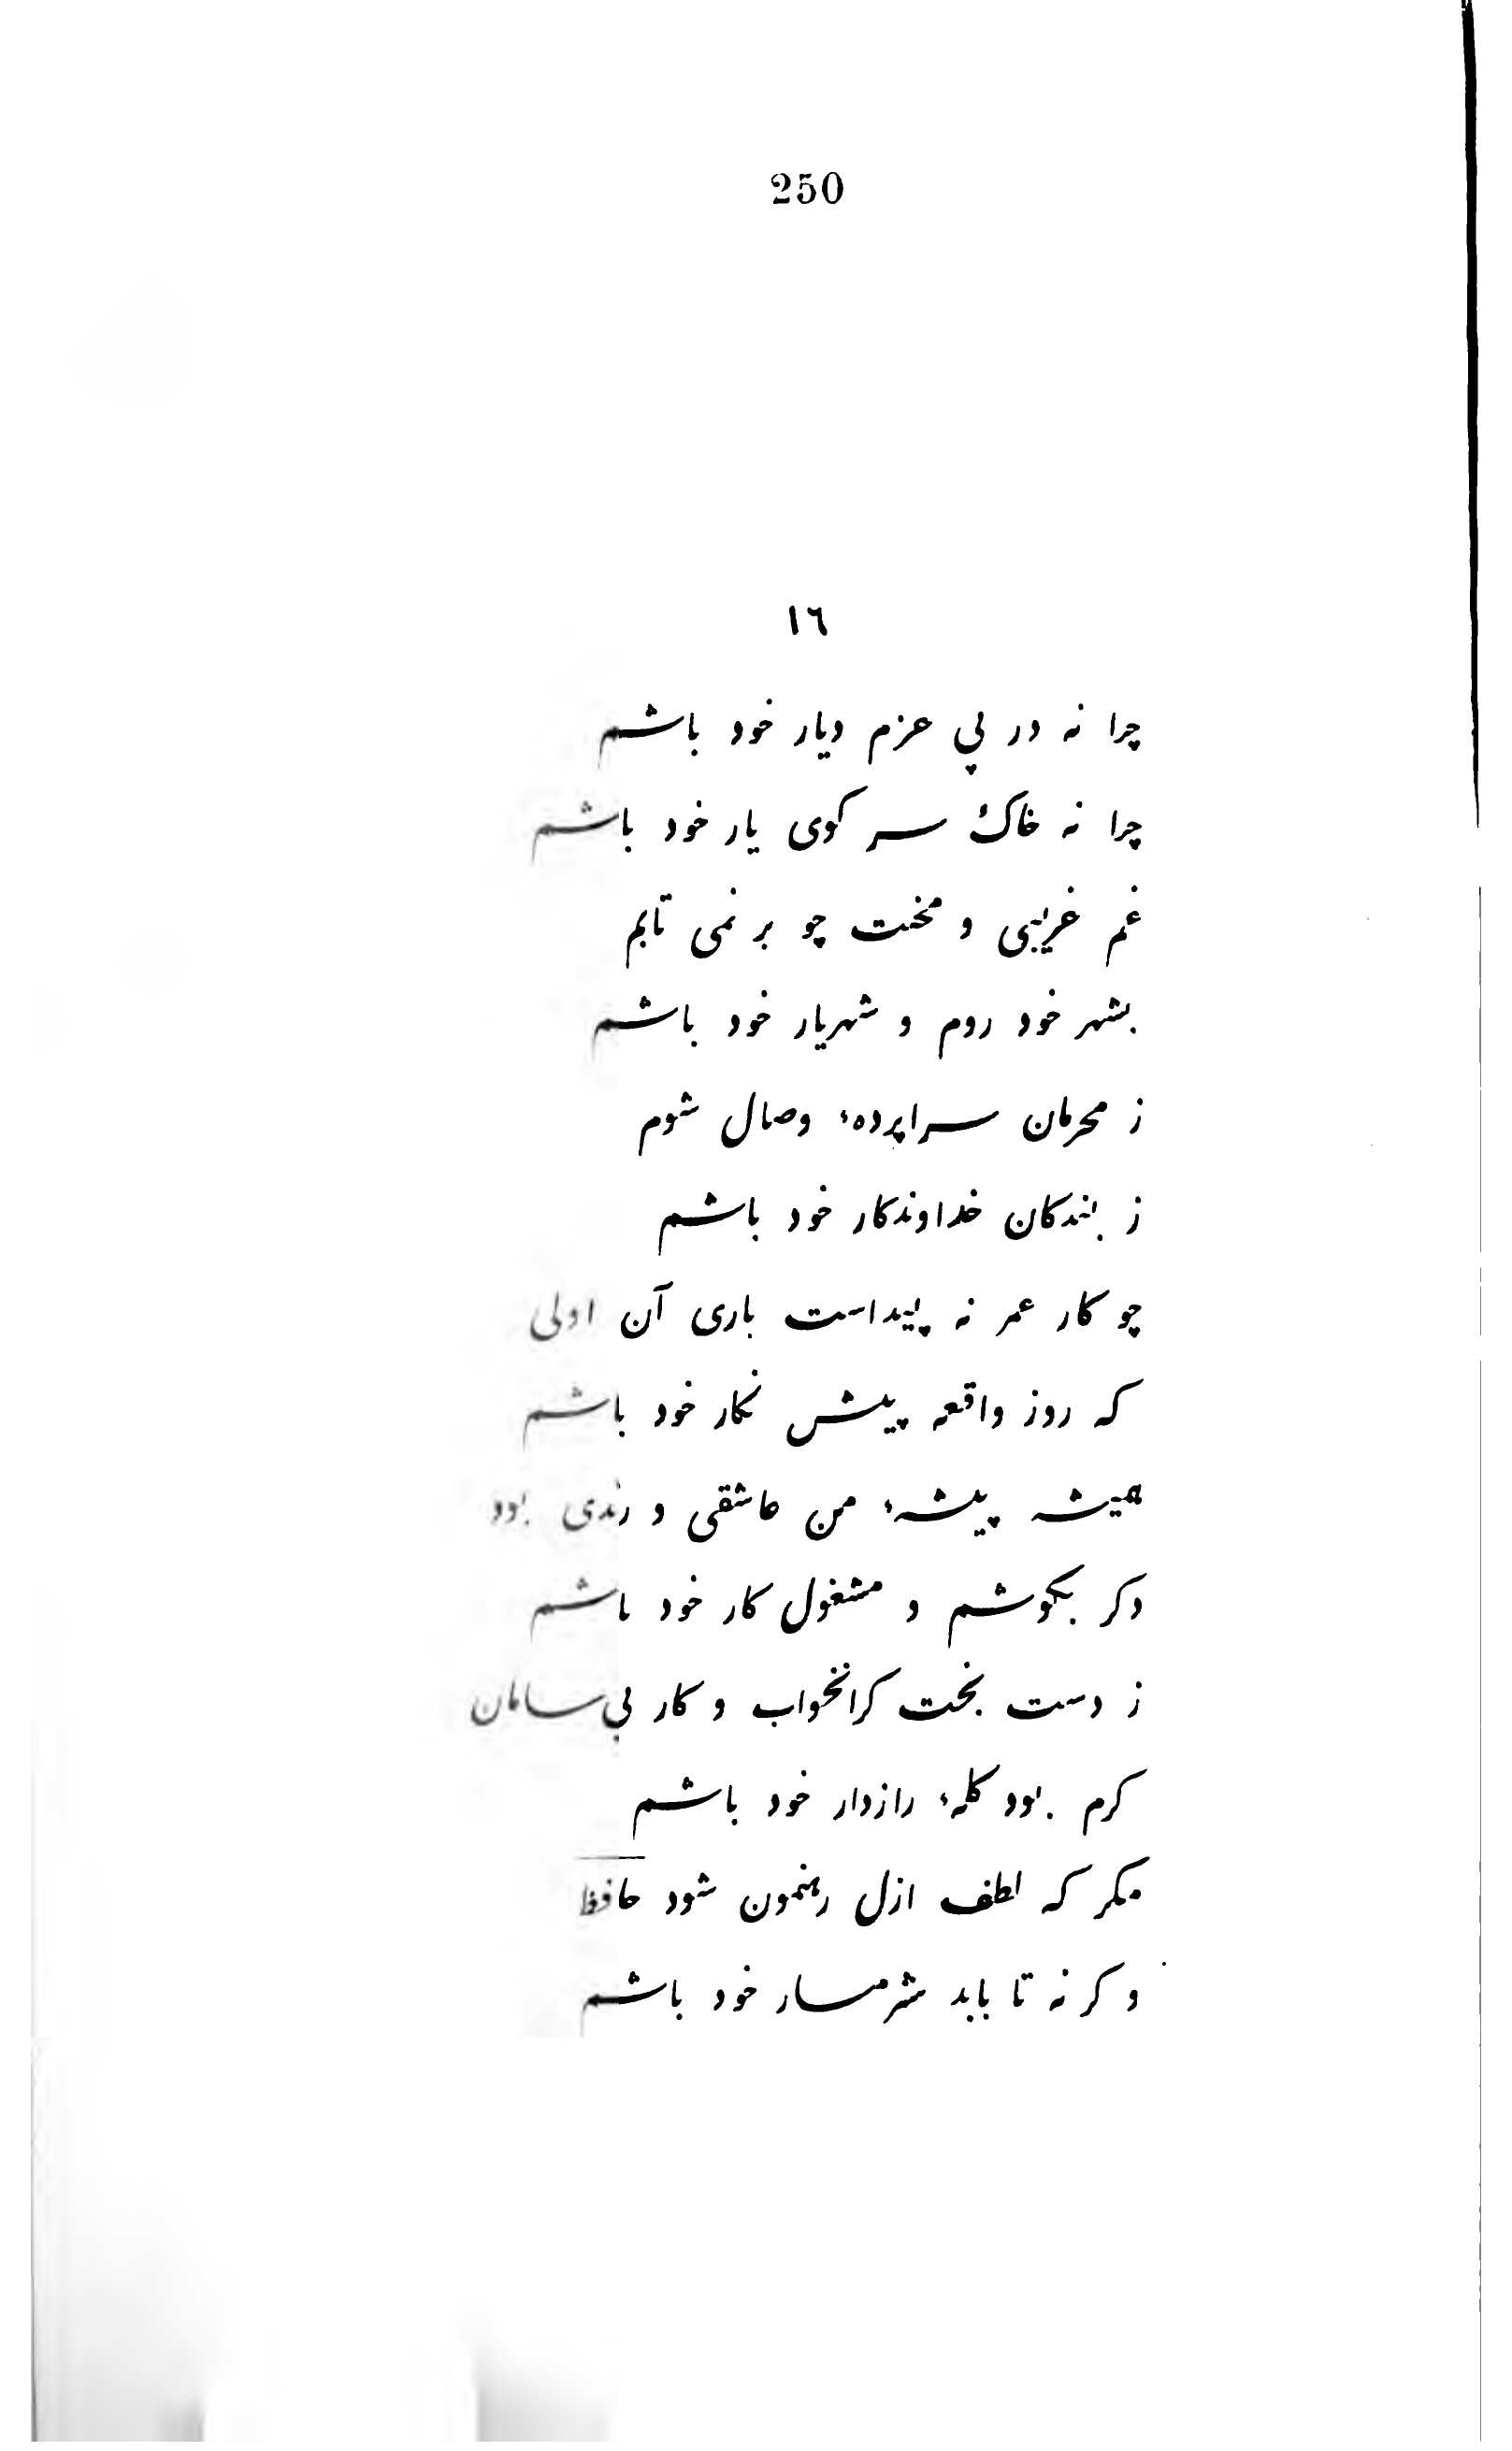 250
١٦
چرا نه در پی عزم دیار خود باشم
چرا نه خاك سر کوی یار خود باشم
غم غریبی و مخنت چو بر نمی تابم
بشهر خود روم و شهریار خود باشم
ز محرمان سراپردهٔ وصال شوم
ز بندکان خداوندکار خود باشم
چو کار عمر نه پیداست باری آن اولی
که روز واقعه پیش نکار خود باشم
همیشه پیشهٔ من عاشقی و رندی بود
دکر بکوشم و مشغول کار خود باشم
ز دست بخت کرانخواب و کار بی سامان
کرم بود کلهٔ رازدار خود باشم
مکر که لطف ازل رهنمون شود حافظ
و کر نه تا بابد شرمسار خود باشم